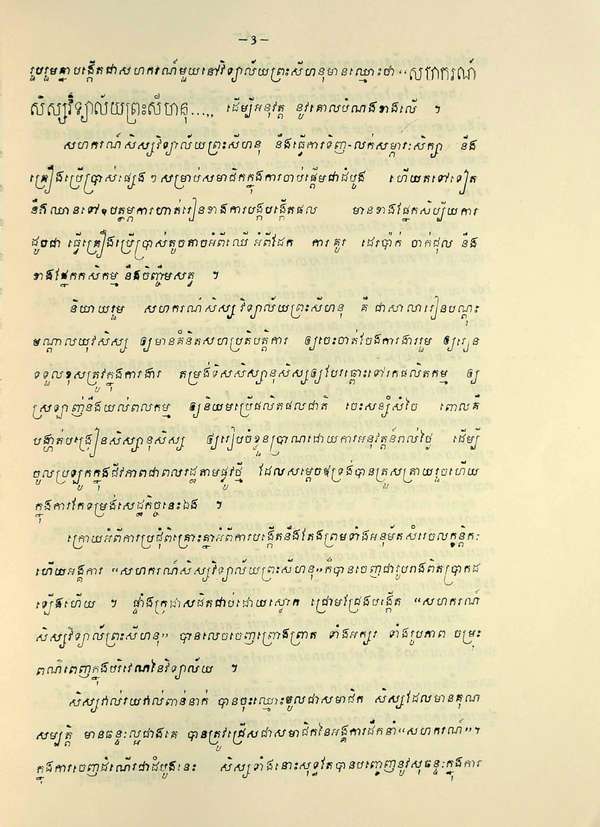 — 3 —
រួបរួមគ្នាបង្កើតជាសហករណ៍មួយនៅវិទ្យាល័យព្រះសីហនុមានឈ្មោះថា "សហករណ៍
សិស្សវិទ្យាល័យព្រះសីហនុ..... ដើម្បីអនុវត្ត នូវគោលបំណងខាងលើ ។
សហករណ៍សិស្សវិទ្យាល័យព្រះសីហនុ នឹងធ្វើការទិញ-លក់សម្ភារៈសិក្សា នឹង
គ្រឿងប្រើប្រាស់ផ្សេងៗសម្រាប់សមាជិកក្នុងការចាប់ផ្ដើមជាដំបូង ហើយតទៅទៀត
នឹងឈានទៅឧបត្ថម្ភការហាត់រៀនខាងការបង្កបង្កើតផល មានខាងផ្នែកសិប្បីយការ
ដូចជា ធ្វើគ្រឿងប្រើប្រាស់តូចតាចអំពីឈើ អំពីដែក ការគូរ ដេរប៉ាក់ ចាក់ដុល នឹង
ខាងផ្នែកកសិកម្ម នឹងចិញ្ចឹមសត្វ ។
និយាយរួម សហករណ៍សិស្សវិទ្យាល័យព្រះសីហនុ គឺជាសាលារៀនបណ្ដុះ
បណ្ដាលយុវសិស្ស ឲ្យមានគំនិតសហប្រតិបត្តិការ ឲ្យចេះចាត់ចែងការងាររួម ឲ្យរៀន
ទទួលខុសត្រូវក្នុងការងារ តម្រង់ទិសសិស្សានុសិស្សឲ្យបែរឆ្ពោះទៅរកផលិតកម្ម ឲ្យ
ស្រឡាញ់នឹងយល់ពលកម្ម ឲ្យនិយមប្រើផលិតផលជាតិ ចេះសន្សំសំចៃ ពោលគឺ
បង្ហាត់បង្រៀនសិស្សានុសិស្ស ឲ្យរៀបចំខ្លួនប្រាណដោយការអនុវត្តន៍រាល់ថ្ងៃ ដើម្បី
ចូលប្រឡូកក្នុងជីវភាពជាពលរដ្ឋតាមផ្លូវថ្មី ដែលសម្ដេចឪទ្រង់បានត្រួសត្រាយរួចហើយ
ក្នុងការកែទម្រង់សេដ្ឋកិច្ចនេះឯង ។
ក្រោយអំពីការប្រជុំពិគ្រោះគ្នាអំពីការបង្កើតនឹងតែងព្រមទាំងអនុម័តសំរេចលក្ខន្តិកៈ
ហើយអង្គការ "សហករណ៍សិស្សវិទ្យាល័យព្រះសីហនុ" ក៏បានចេញជារូបរាងពិតប្រាកដ
ឡើងហើយ ។ ផ្ទាំងក្រដាសបិតជាប់ដោយស្លោក ជ្រោមជ្រែងបង្កើត "សហករណ៍
សិស្សវិទ្យាល័ព្រះសីហនុ" បានលេចចេញព្រោងព្រាត ទាំងអក្សរ ទាំងរូបភាព ចម្រុះ
ពណ៌ពេញក្នុងបរិវេណនៃវិទ្យាល័យ ។
សិស្សរាប់រយរាប់ពាន់នាក់ បានចុះឈ្មោះចូលជាសមាជិក សិស្សដែលមានគុណ
សម្បត្តិ មានឆន្ទៈល្អជាងគេ បានត្រូវជ្រើសជាសមាជិកនៃអង្គការដឹកនាំ "សហករណ៍" ។
ក្នុងការចេញដំណើរជាដំបូងនេះ សិស្សទាំងនោះសុទ្ធតែបានបញ្ចេញនូវសុឆន្ទៈក្នុងការ